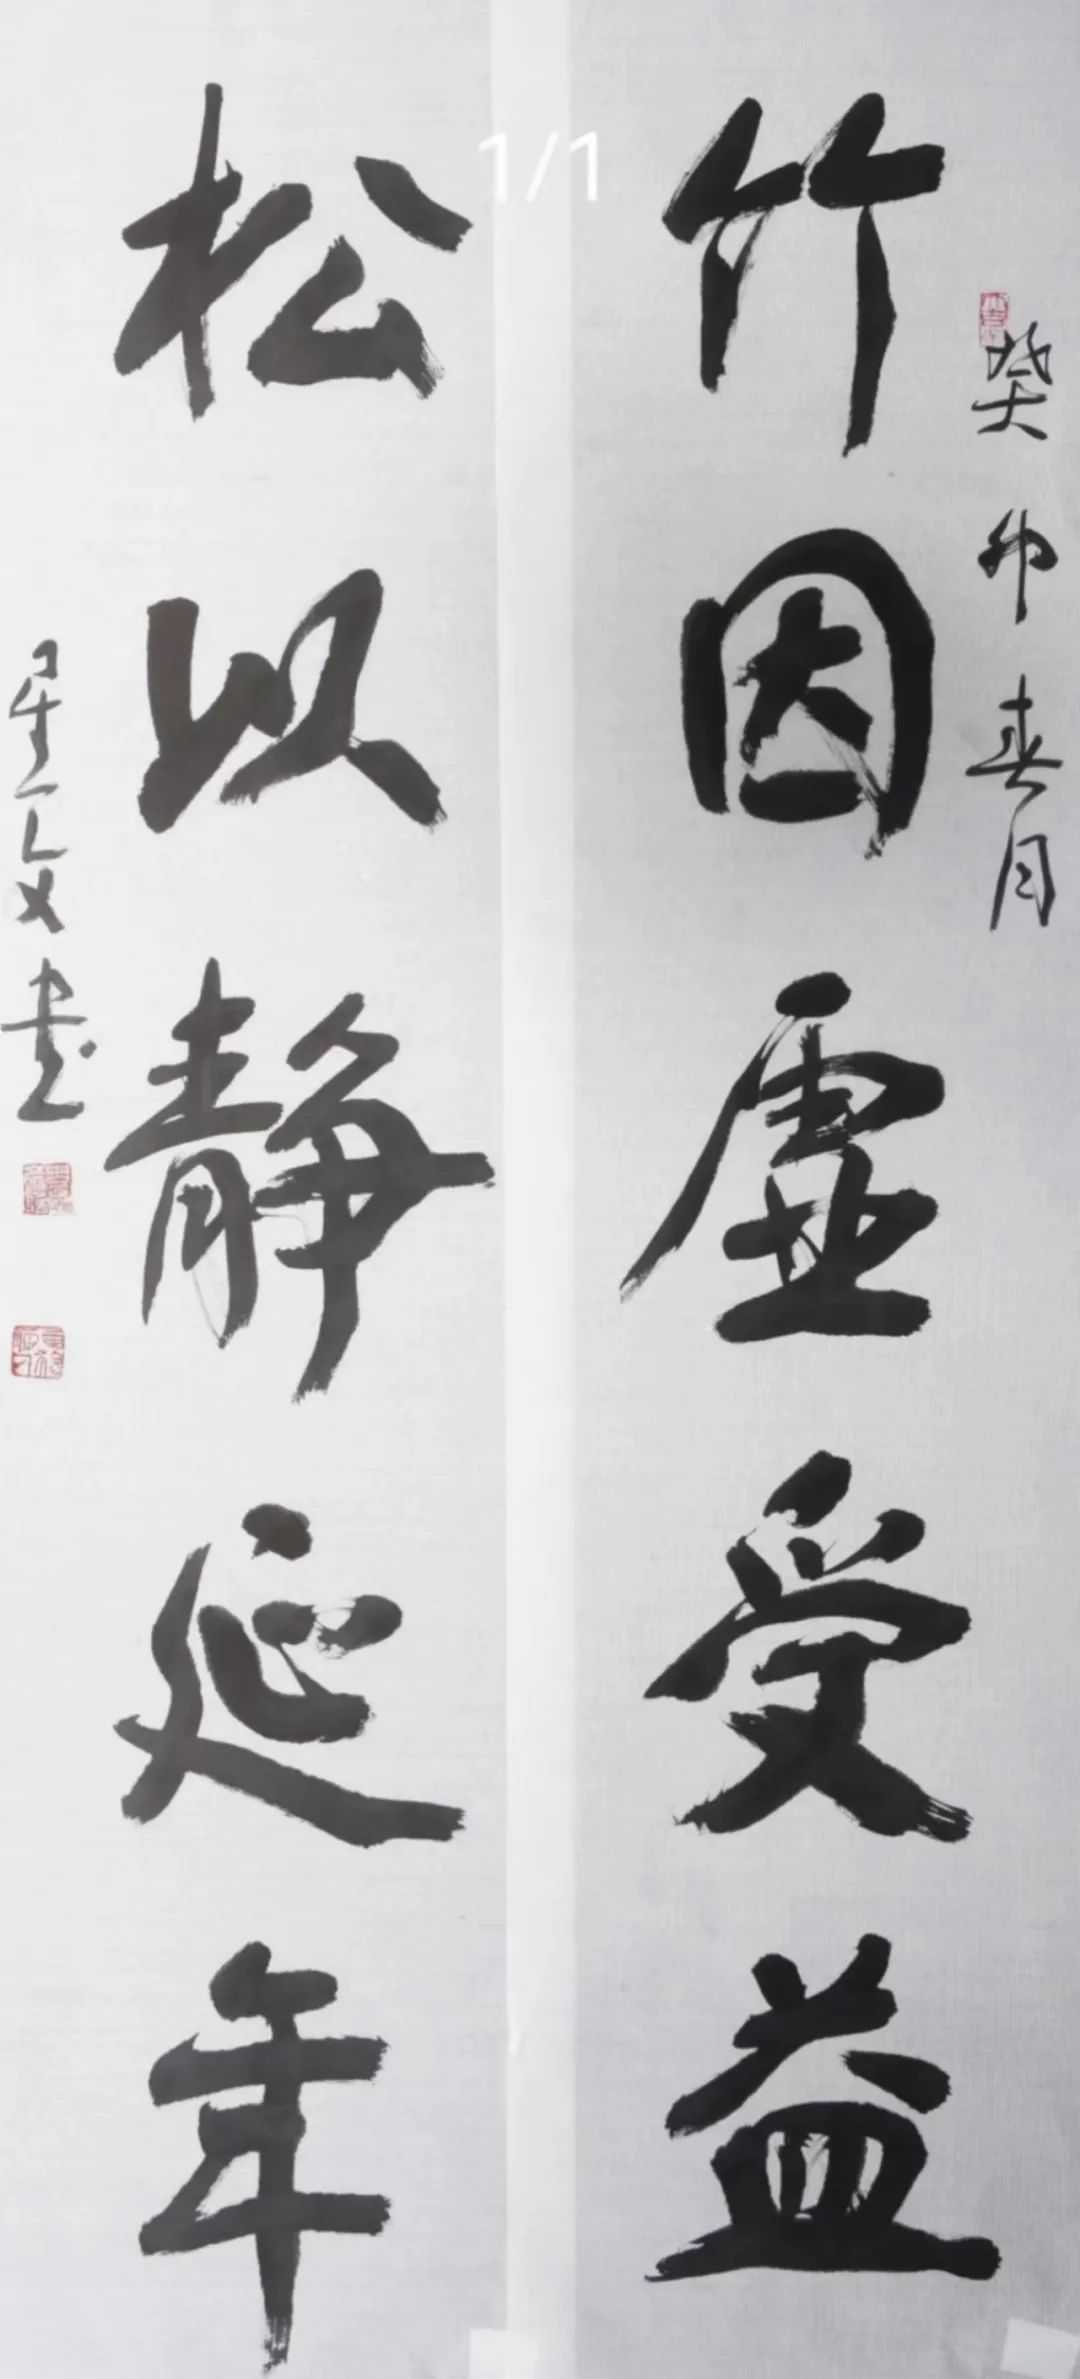 癸卯春月
竹因虚受益
松以静延年
星文书
1/1